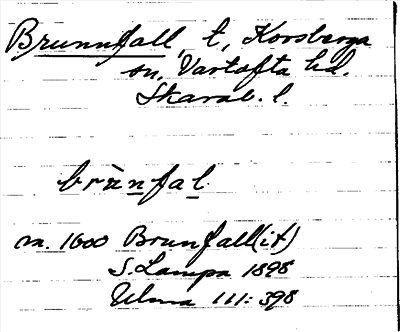 Brunnfall, t, Korsberga
sn, Vartofta hd.
Skarab. l.
brùnfal
m. 1600 Brunfall(it)
S. Lampa 1898
Ulma 111:398